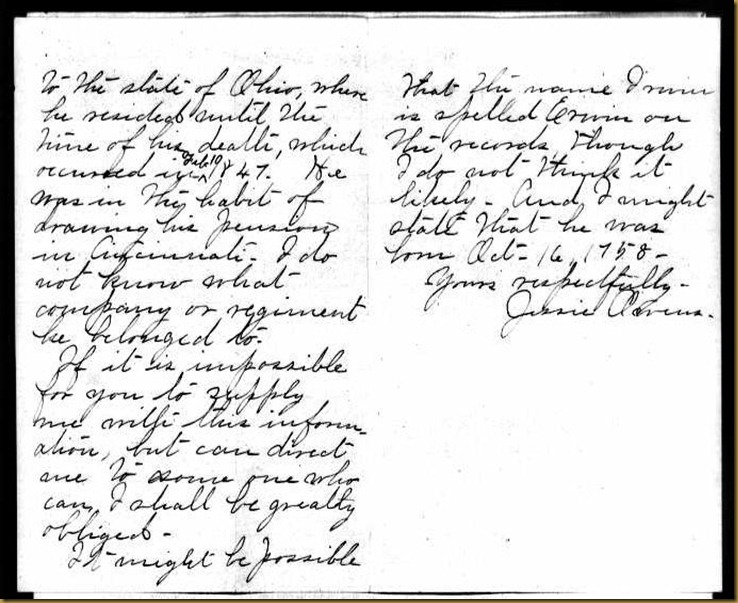 to the state of Ohio, where
he resided until the
time of his death, which
occurred in Feb 10 1847. He
was in the habit of
drawing his pension
in Cincinnati. I do
not know what
company or regiment
he belonged to.
If it is impossible
for you to supply
me with this inform-
ation, but can direct
me to some one who
can, I shall be greatly
obliged -
It might be possible
that the name Irwin
is spelled Erwin on
the records, though
I do not think it
likely - And I might
state that he was
born Oct - 16, 1758 -
Yours respectfully -
Jessie